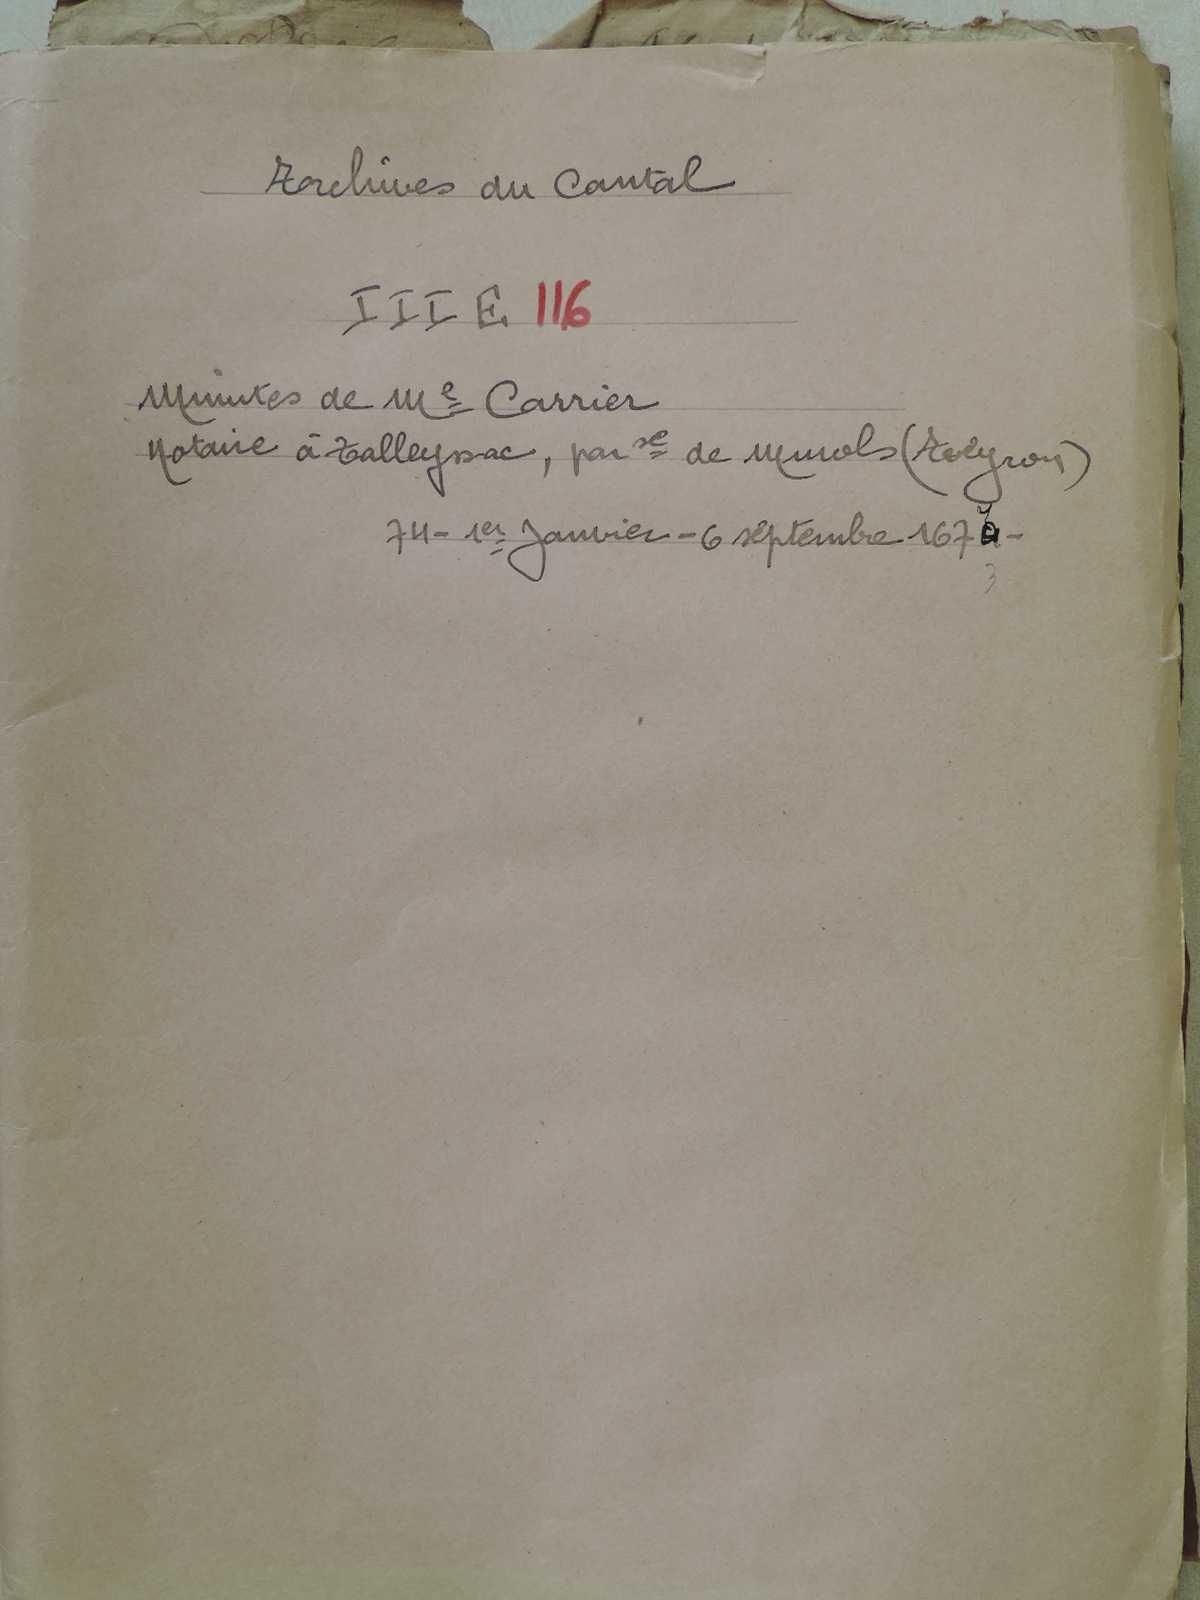 Archives du Cantal
III E 116
Minutes de Me Carrier
Notaire à Talleyssac, parse de Murols (Aveyron)
74 - 1er Janvier - 6 septembre 167
3